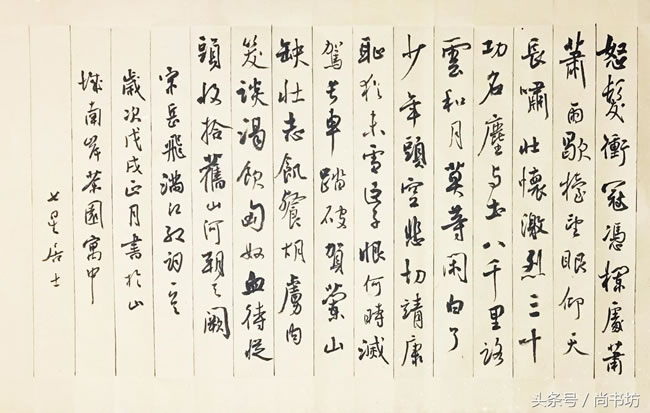 怒髮衝冠憑欄處蕭
蕭雨歇擡望眼仰天
長嘯壯懷激烈三十
功名塵與土八千里路
雲和月莫等閑白了
少年頭空悲切靖康
恥猶未雪臣子恨何時滅
駕長車踏破賀蘭山
缺壯志飢餐胡虜肉
笑談渴飲匈奴血待從
頭收拾舊山河朝天闕
宋岳飛滿江紅詞一首
歲次戊戌正月書於山
城南岸茶園寓中
七星居士
头条号 / 尚书坊